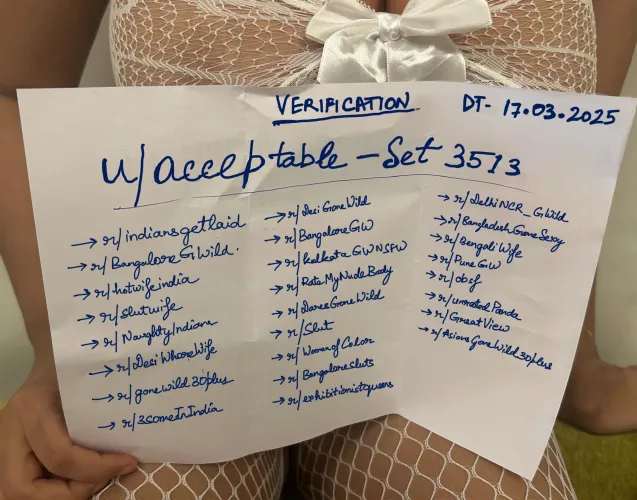 VERIFICATION
DT- 17.03.2025
u/acceptable-Set 3513
→ r/indiansgetlaid
→ r/BangaloreGWild.
→ r/hotwifeindia
→ r/slutwife
→ r/NaughtyIndians
→ r/DesiWhoreWife
→ r/gonewild30plus
→ r/3someInIndia
→ r/DesiGoneWild
→ r/BangaloreGW
→ r/kolkata GWNSFW
→ r/RateMyNudeBody
→ r/DaresGoneWild
→ r/Slut
→ r/WomenofColor
→ r/Bangaloresluts
→ r/exhibitionistqueens
→ r/DelhiNCR_GWild
→ r/BangladeshGoneSexy
→ r/BengaliWife
→ r/PuneGW
→ r/obsf
→ r/unratedPanda
→ r/GreatView
→ r/AsiansGoneWild30plus